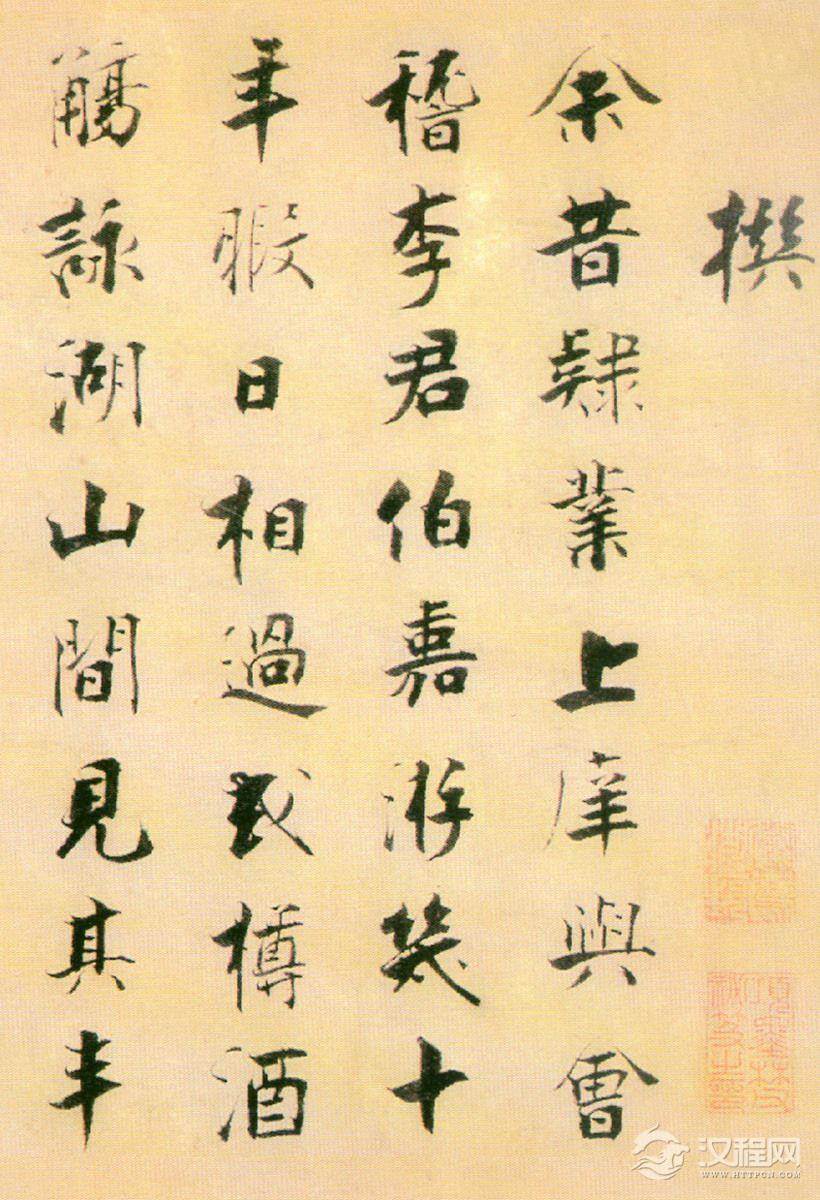 撰
余昔隸業上庠與會
稽李君伯嘉游幾十
年暇日相過或樽酒
觴詠湖山間見其丰
汉程网
WWW.HTTPCN.COM